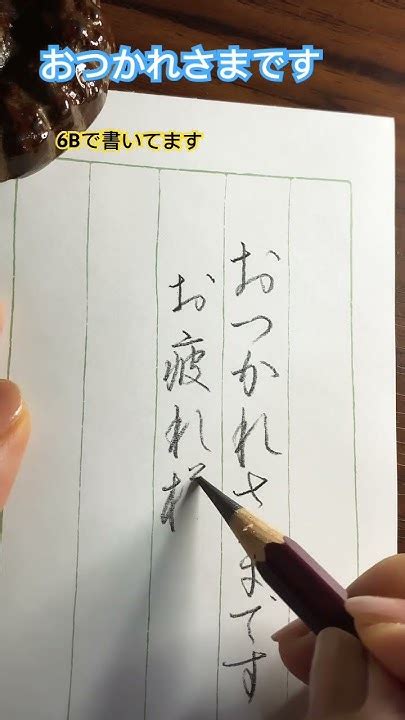 おつかれさまです
6Bで書いてます
おつかれさまです
お疲れ様